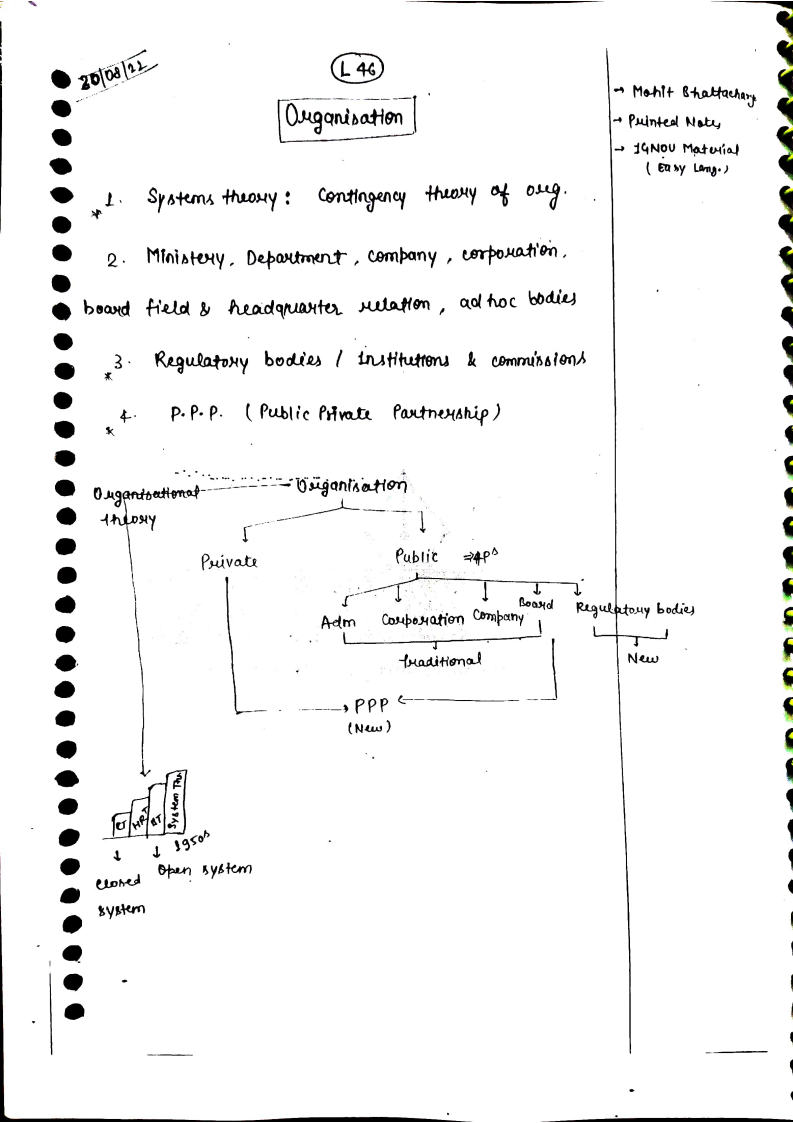 30/08/22
L 46
Organisation
→ Mohit Bhattacharya
→ Printed Notes
→ IGNOU Material
( Easy Lang.)
* 1. Systems theory : Contingency theory of org.
2. Ministery, Department, company, corporation,
board field & headquarter relation, ad hoc bodies
* 3. Regulatory bodies / Institutions & commissions
* 4. P.P.P. ( Public Private Partnership )
Organisational theory
Organisation
Private
Public ⇒4Ps
Adm
Corporation
Company
Board
Regulatory bodies
Traditional
New
PPP
(New)
CT
HRT
BT
System Thr
1950s
closed system
Open system